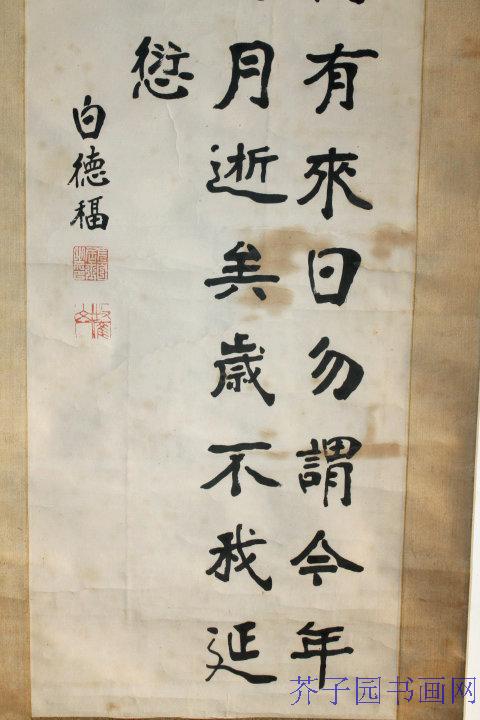 有來日勿謂今年
月逝矣歲不我延
愆
白德福
芥子园书画网